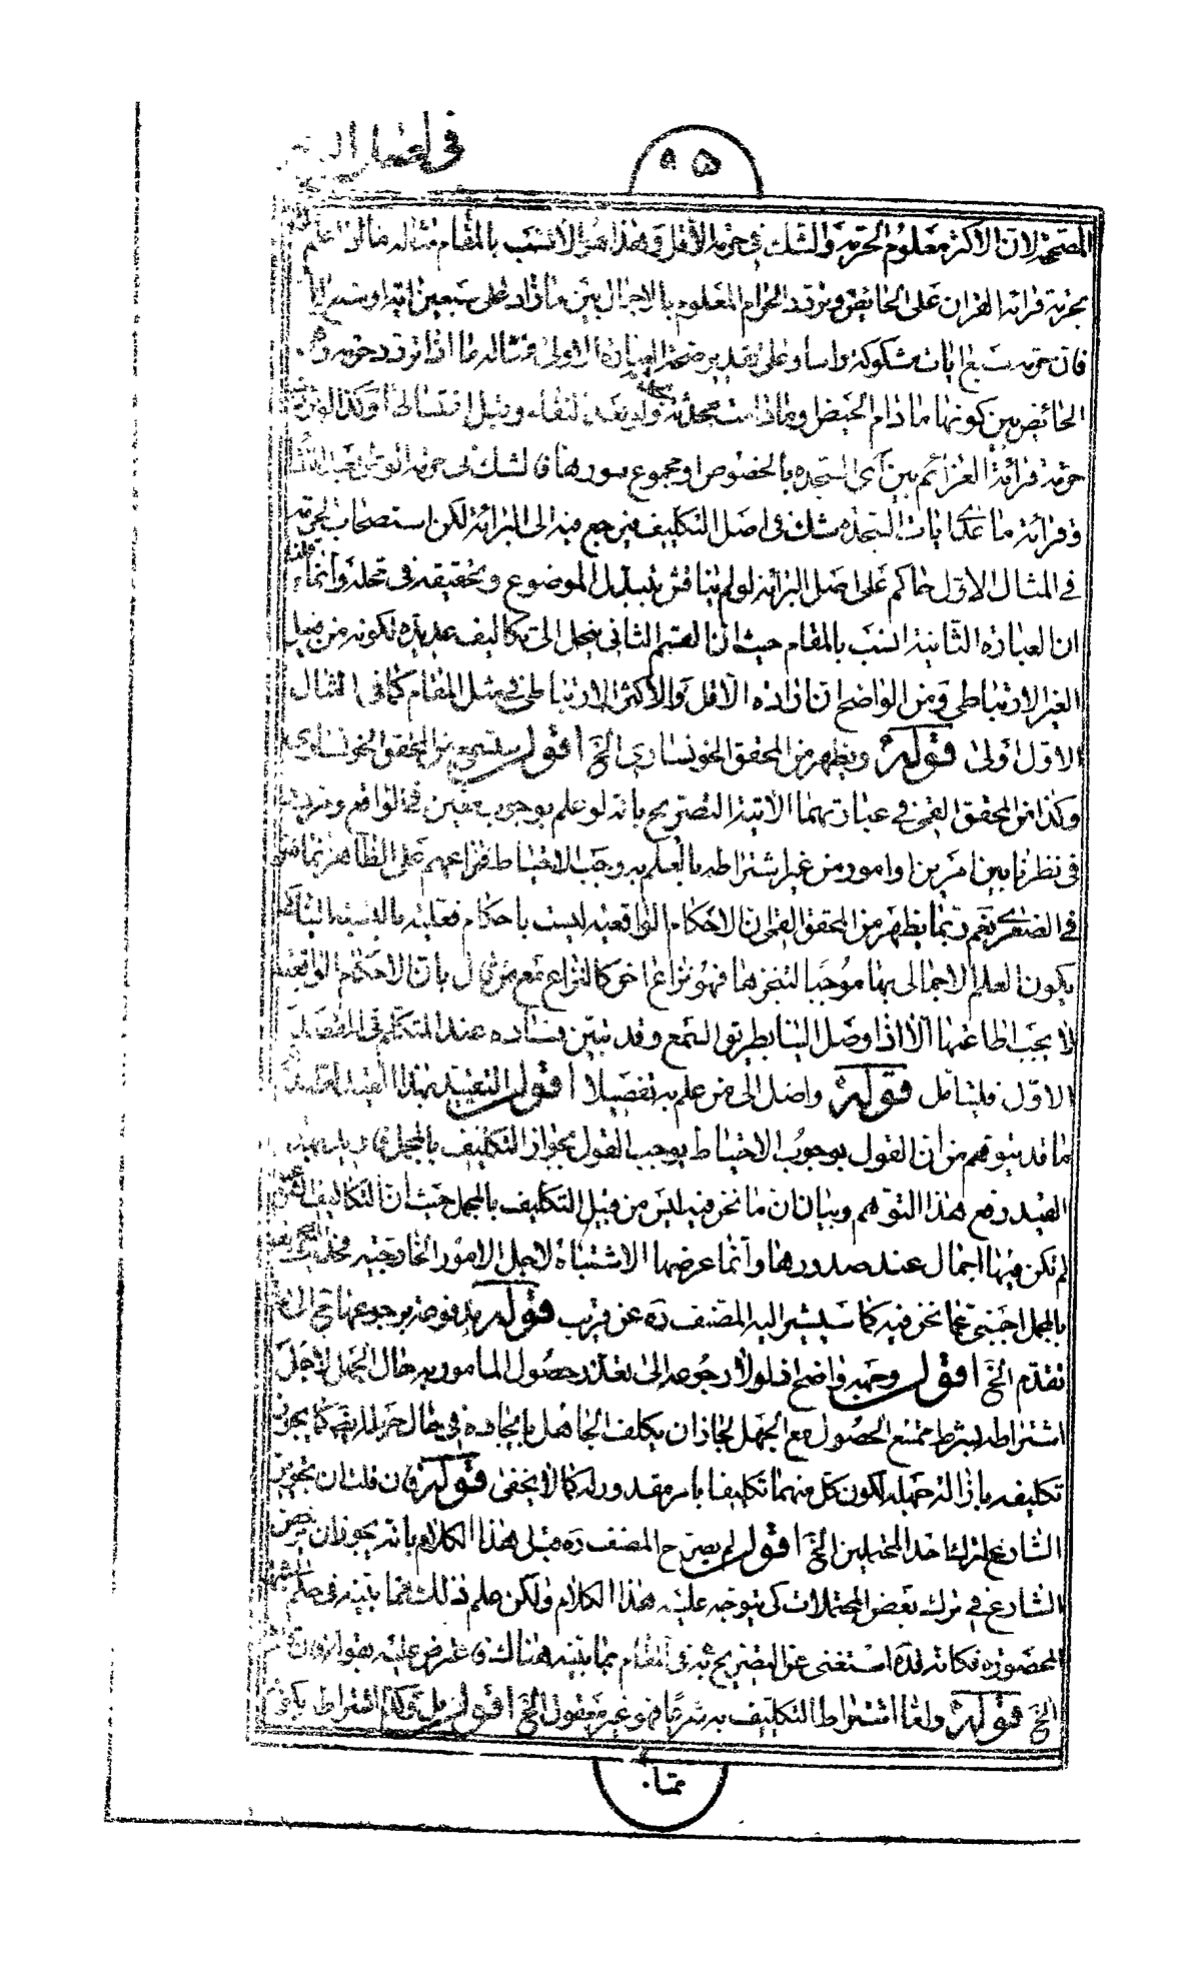 في
٨٥
المصححة لان الاكثر معلوم الحرمة والشك في حرمة الاقل وهذا هو الانسب بالمقام مثاله ما لو علم
بحرمة قرائة القران على الحائض وتردد الحرام المعلوم بالاجمال بين ما زاد على سبعين اية او سبع ايات
فان حرمة سبع ايات مشكوكة واما على تقدير صحة العبارة الاولى فمثاله ما اذا تردد حرمة
الحائض بين كونها ما دام الحيض وما دامت محدثة ولو بعد النقاء وقبل اغتسالها وكذا لو تردد
حرمة قرائة العزائم بين آي السجدة بالخصوص او مجموع سورها فالشك في حرمة
وقرائة ما عدا ايات السجدة شك في اصل التكليف فيرجع فيه الى البرائة لكن استصحاب الحرمة
في المثال الاول حاكم على اصل البرائة لو لم يناقش بتبدل الموضوع وتحقيقه في محله وانما
ان العبارة الثانية انسب بالمقام حيث ان القسم الثاني ينحل الى تكاليف عديدة لكونه من قبيل
الغير الارتباطي ومن الواضح ان ارادة الاقل والاكثر الارتباطي في مثل المقام كما في المثال
الاول اولى قوله ويظهر من المحقق الخونساري الخ اقول ستسمع من المحقق الخونساري
وكذا من المحقق القمي في عبارتهما الاتية التصريح بانه لو علم بوجوب معين في الواقع وتردد
في نظرنا بين امرين او امور من غير اشتراطه بالعلم به وجب الاحتياط فنزاعهم على الظاهر انما هو
في الصغرى نعم ربما يظهر من المحقق القمي ان الاحكام الواقعية ليست باحكام فعلية بالنسبة الينا
يكون العلم الاجمالي بها موجبا لتنجزها فهو نزاع اخر كالنزاع مع من قال بان الاحكام الواقعية
لا يجب اطاعتها الا اذا وصل الينا بطريق السمع وقد تبين فساده عند التكلم في المقصد
الاول فليتامل قوله واصل الى من علم به تفصيلا اقول التقييد بهذا القيد لدفع
ما قد يتوهم من ان القول بوجوب الاحتياط يوجب القول بجواز التكليف بالمجمل فاريد بهذا
القيد دفع هذا التوهم وبيان ان ما نحن فيه ليس من قبيل التكليف بالمجمل حيث ان التكاليف
لم تكن فيها اجمال عند صدورها وانما عرضها الاشتباه لاجل الامور الخارجية فحديث
بالمجمل اجنبي عما نحن فيه كما سيشير اليه المصنف ره عن قريب قوله مدفوعة برجوعها الى ما
تقدم الخ اقول وجهه واضح اذ لولا رجوعه الى تعذر حصول المامور به حال الجهل لاجل
اشتراطه بشرط ممتنع الحصول مع الجهل لجاز ان يكلف الجاهل بايجاده في حال جهله كما يجوز
تكليفه بازالة جهله لكون كل منهما تكليفا بامر مقدور له كما لا يخفى قوله فان قلت ان تجويز
الشارع لترك احد المحتملين الخ اقول لم يصرح المصنف ره قبل هذا الكلام بانه يجوز ان يرخص
الشارع في ترك بعض المحتملات كي يتوجه عليه هذا الكلام ولكن علم ذلك مما بينه في حكم الشبهة
المحصورة فكانه قده استغنى عن التصريح به في المقام مما بينه هناك فاعترض عليه بقوله فان قلت
الخ قوله واما اشتراط التكليف به شرعا فهو غير معقول الخ اقول بل وكذا اشتراط
مما